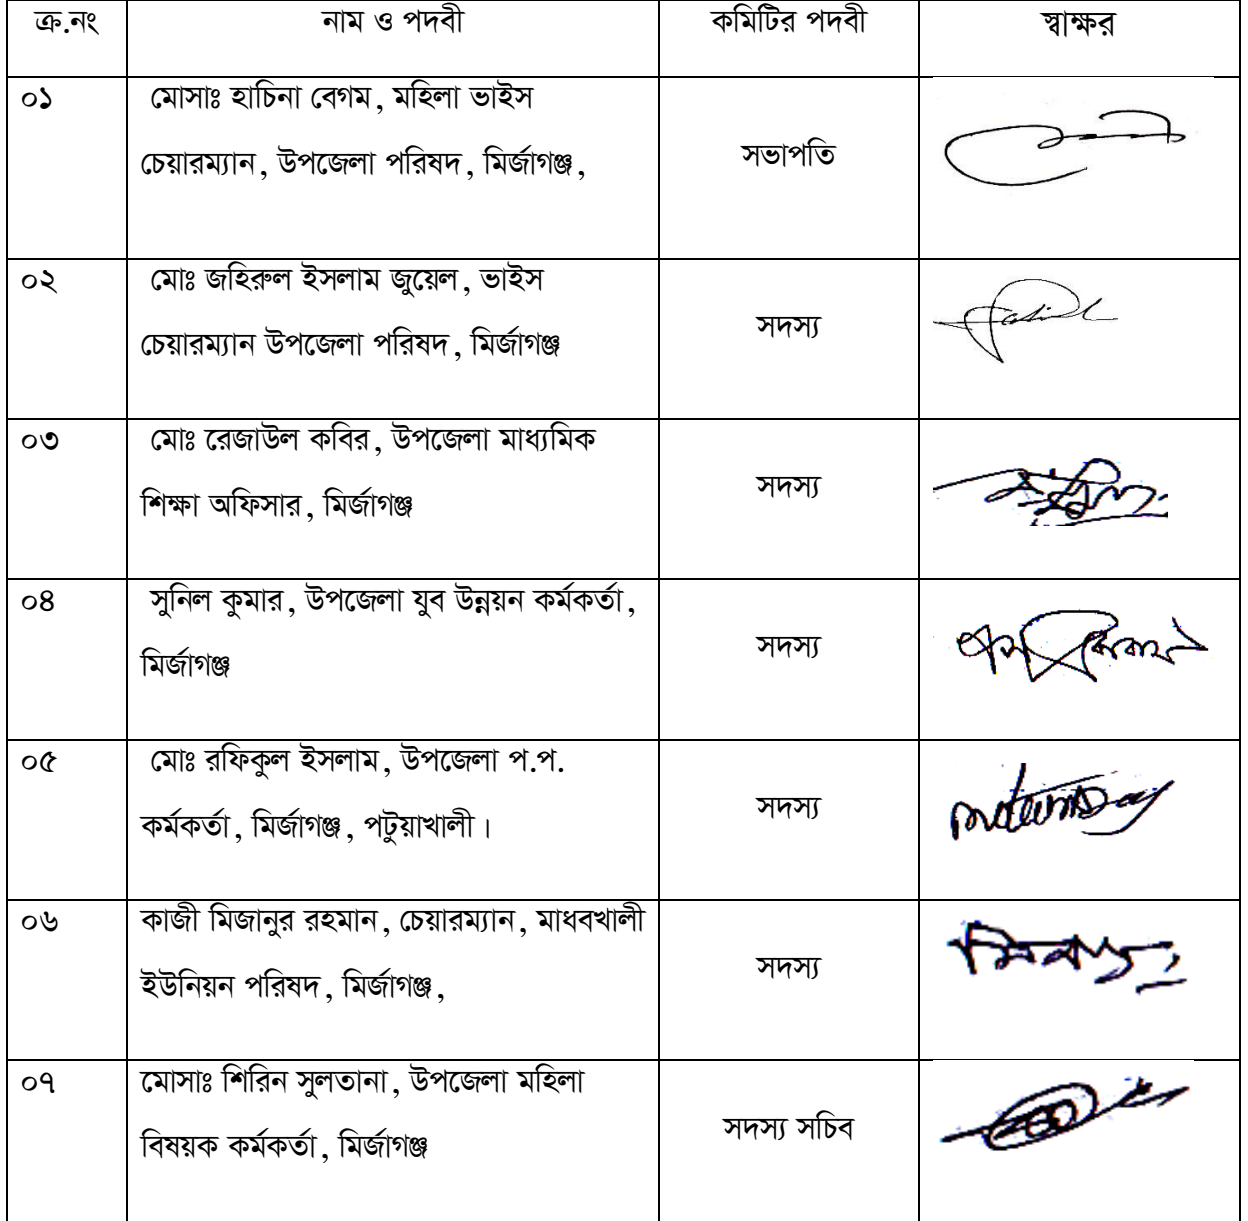 ক্র.নং নাম ও পদবী কমিটির পদবী স্বাক্ষর
০১ মোসাঃ হাচিনা বেগম, মহিলা ভাইস
চেয়ারম্যান, উপজেলা পরিষদ, মির্জাগঞ্জ, সভাপতি
০২ মোঃ জহিরুল ইসলাম জুয়েল, ভাইস
চেয়ারম্যান উপজেলা পরিষদ, মির্জাগঞ্জ সদস্য
০৩ মোঃ রেজাউল কবির, উপজেলা মাধ্যমিক
শিক্ষা অফিসার, মির্জাগঞ্জ সদস্য
০৪ সুনিল কুমার, উপজেলা যুব উন্নয়ন কর্মকর্তা,
মির্জাগঞ্জ সদস্য
০৫ মোঃ রফিকুল ইসলাম, উপজেলা প.প.
কর্মকর্তা, মির্জাগঞ্জ, পটুয়াখালী। সদস্য
০৬ কাজী মিজানুর রহমান, চেয়ারম্যান, মাধবখালী
ইউনিয়ন পরিষদ, মির্জাগঞ্জ, সদস্য
০৭ মোসাঃ শিরিন সুলতানা, উপজেলা মহিলা
বিষয়ক কর্মকর্তা, মির্জাগঞ্জ সদস্য সচিব